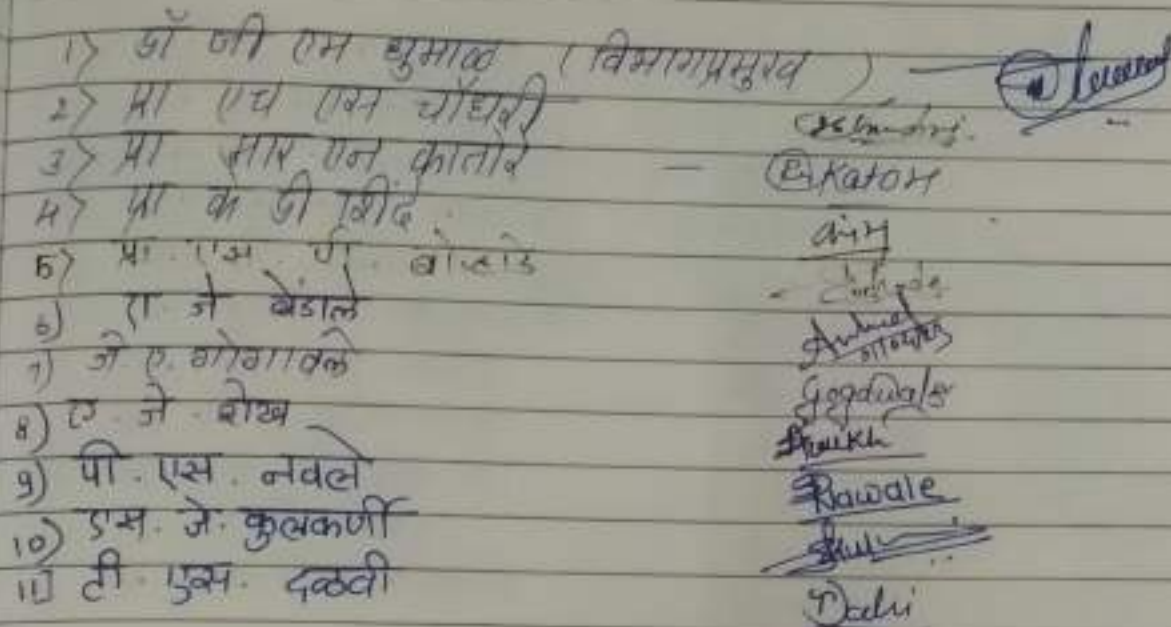 1) डॉ जी एम धुमाळ (विभागप्रमुख) —
2) प्रा एच एस चौधरी
3) प्रा आर एन कातोरे — Katore
4) प्रा के डी शिंदे
5) प्रा. एस. पी. बोऱ्हाडे
6) ए जे बेंडाले
7) जे ए. गोगावले Gogawale
8) ए. जे. शेख Shaikh
9) पी. एस. नवले Nawale
10) एस. जे. कुलकर्णी
11) टी. एस. दळवी Dalvi